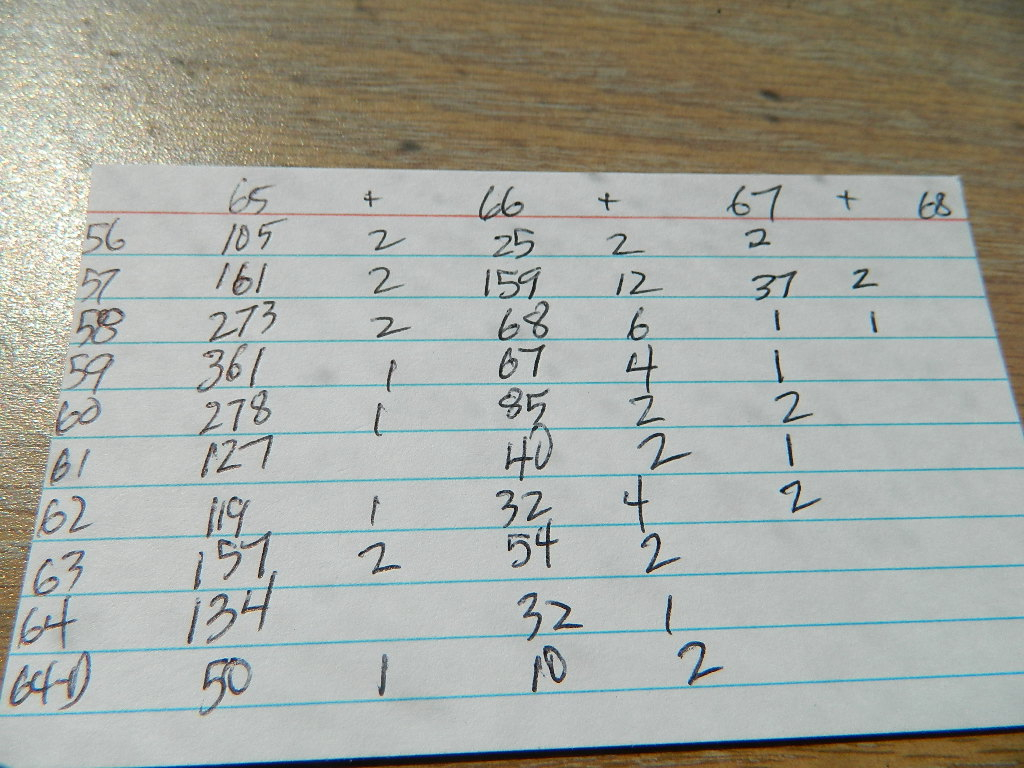 65 + 66 + 67 + 68
56 105 2 25 2 2
57 161 2 159 12 37 2
58 273 2 68 6 1 1
59 361 1 67 4 1
60 278 1 85 2 2
61 127 40 2 1
62 119 1 32 4 2
63 157 2 54 2
64 134 32 1
64-D 50 1 10 2